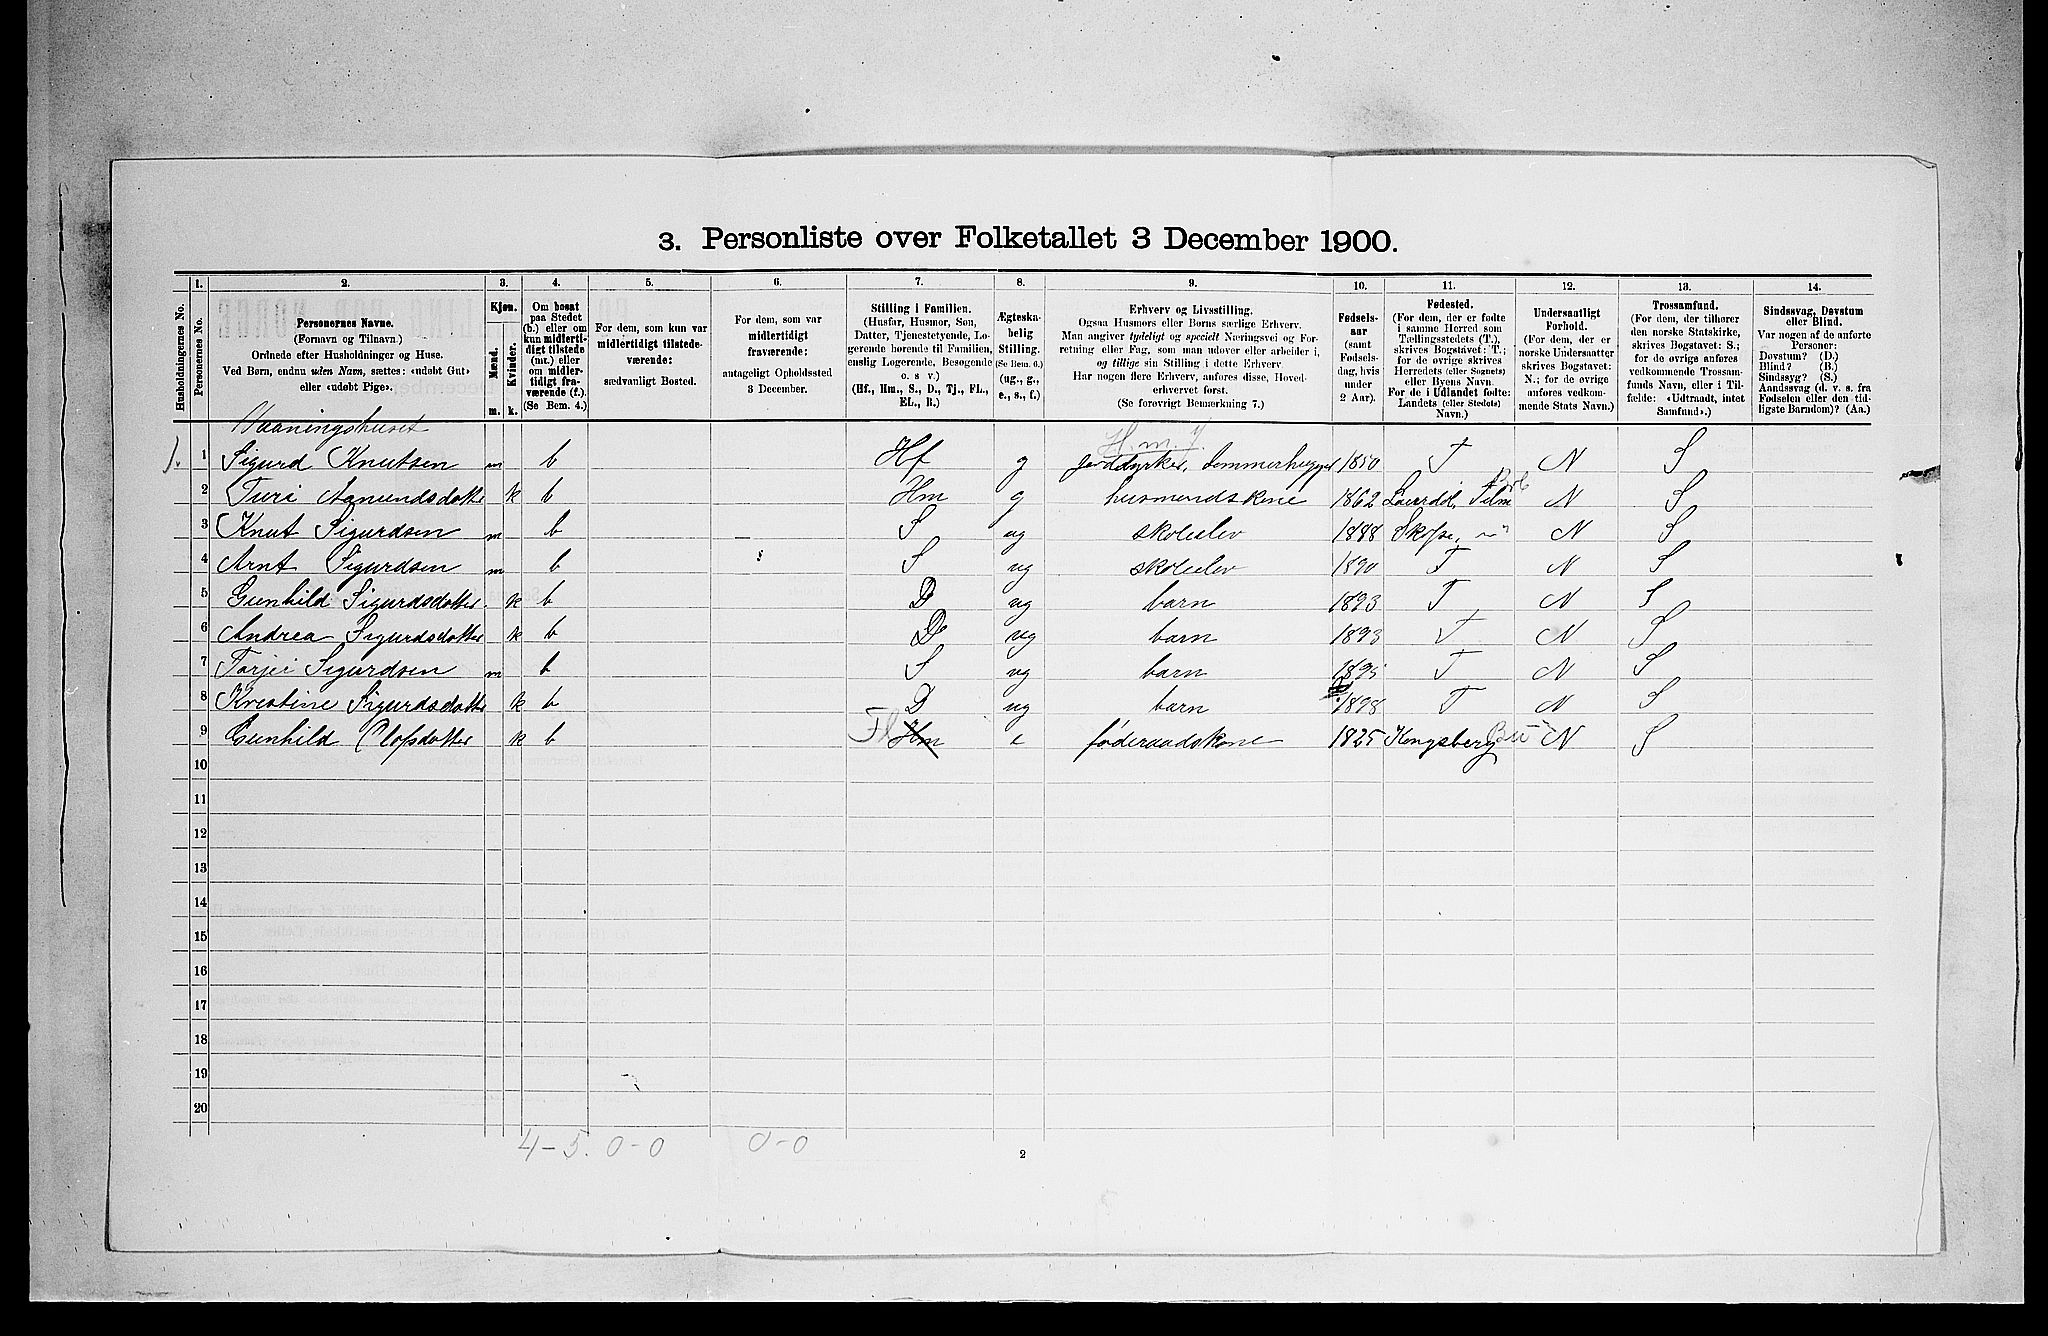 3. Personliste over Folketallet 3 December 1900.
Husholdningernes No.
1.
Personernes No.
2.
Personernes Navne.
(Fornavn og Tilnavn.)
Ordnede efter Husholdninger og Huse.
Ved Børn, endnu uden Navn, sættes: «udøbt Gut»
eller «udøbt Pige».
3.
Kjøn.
Mænd.
Kvinder.
m.
k.
4.
Om bosat
paa Stedet
(b.) eller om
kun midlerti-
digt tilstede
(mt.) eller
om midler-
tidigt fra-
værende (f.).
(Se Bem. 4.)
5.
For dem, som kun var
midlertidigt tilstede-
værende:
sædvanligt Bosted.
6.
For dem, som var
midlertidigt
fraværende:
antageligt Opholdssted
3 December.
7.
Stilling i Familien.
(Husfar, Husmor, Søn,
Datter, Tjenestetyende, Lo-
gerende hørende til Familien,
enslig Logerende, Besøgende
o. s v.)
(Hf., Hm., S., D., Tj., FL.,
EL., B.)
8.
Ægteska-
belig
Stilling.
(Se Bem. 6.)
(ug., g.,
e., s., f.)
9.
Erhverv og Livsstilling.
Ogsaa Husmors eller Børns særlige Erhverv.
Man angiver tydeligt og specielt Næringsvei og For-
retning eller Fag, som man udøver eller arbeider i,
og tillige sin Stilling i dette Erhverv.
Har nogen flere Erhverv, anføres disse, Hoved-
erhvervet først.
(Se forøvrigt Bemærkning 7.)
10.
Fødsels-
aar
(samt
Fødsels-
dag, hvis
under
2 Aar).
11.
Fødested.
(For dem, der er fødte
i samme Herred som
Tællingsstedets (T.),
skrives Bogstavet: T.;
for de øvrige skrives
Herredets (eller Sognets)
eller Byens Navn.
For de i Udlandet fødte:
Landets (eller Stedets)
Navn.)
12.
Undersaatligt
Forhold.
(For dem, der er
norske Undersaatter
skrives Bogstavet:
N.; for de øvrige
anføres vedkom-
mende Stats Navn.)
13.
Trossamfund.
(For dem, der tilhører
den norske Statskirke,
skrives Bogstavet: S.;
for de øvrige anføres
vedkommende Trossam-
funds Navn, eller i Til-
fælde: «Udtraadt, intet
Samfund».)
14.
Sindssvag, Døvstum
eller Blind.
Var nogen af de anførte
Personer:
Døvstum? (D.)
Blind? (B.)
Sindssyg? (S.)
Aandssvag (d. v. s. fra
Fødselen eller den tid-
ligste Barndom)? (Aa.)
Vaaningshuset
H. m. J.
1. 1 Sigurd Knutsen m b Hf g jorddyrker, tømmerhugger 1850 T N S
2 Turi Aamundsdotter k b Hm g husmandskone 1862 Laurdal, Telm N S
3 Knut Sigurdsen m b S ug skoleelev 1888 N S
4 Arnt Sigurdsen m b S ug skoleelev 1890 T N S
5 Gunhild Sigurdsdotter k b D ug barn 1893 T N S
6 Andrea Sigurdsdotter k b D ug barn 1893 T N S
7 Torjei Sigurdsen m b S ug barn 1895 T N S
8 Kristine Sigurdsdotter k b D ug barn 1898 T N S
9 Gunhild Olofsdotter k b Fl Hm e føderaadskone 1825 Kongsberg Bu N S
10
11
12
13
14
15
16
17
18
19
20
4-5. 0-0 0-0
2